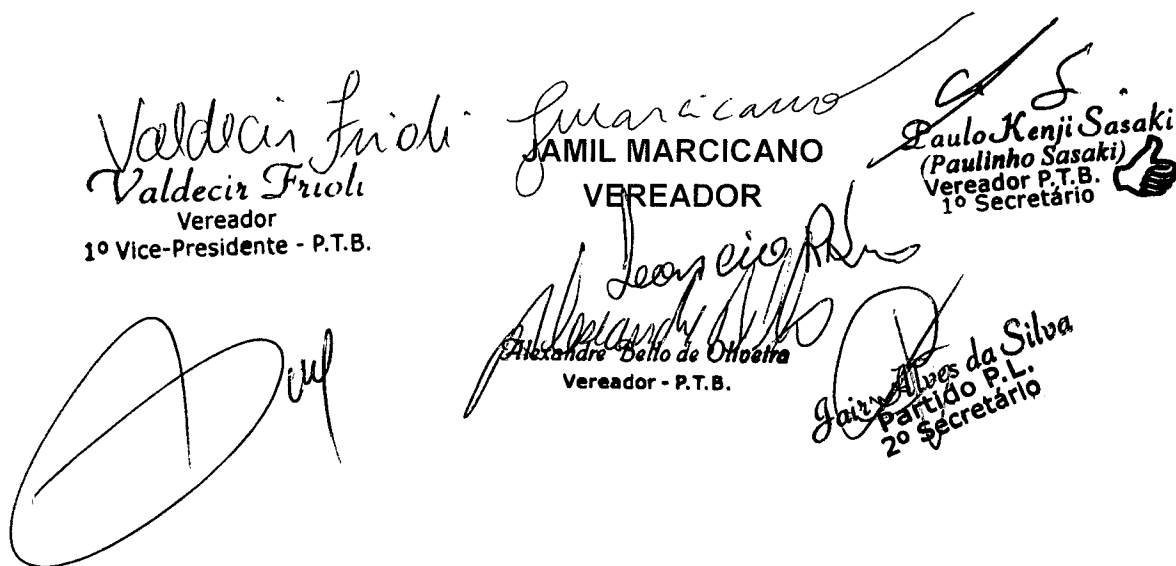 Valdecir Frioli
Valdecir Frioli
Vereador
1º Vice-Presidente - P.T.B.
Jmarcicano
JAMIL MARCICANO
VEREADOR
Paulo Kenji Sasaki
(Paulinho Sasaki)
Vereador P.T.B.
1º Secretário
Alexandre Bello de Oliveira
Vereador - P.T.B.
Jair Alves da Silva
Partido P.L.
2º Secretário